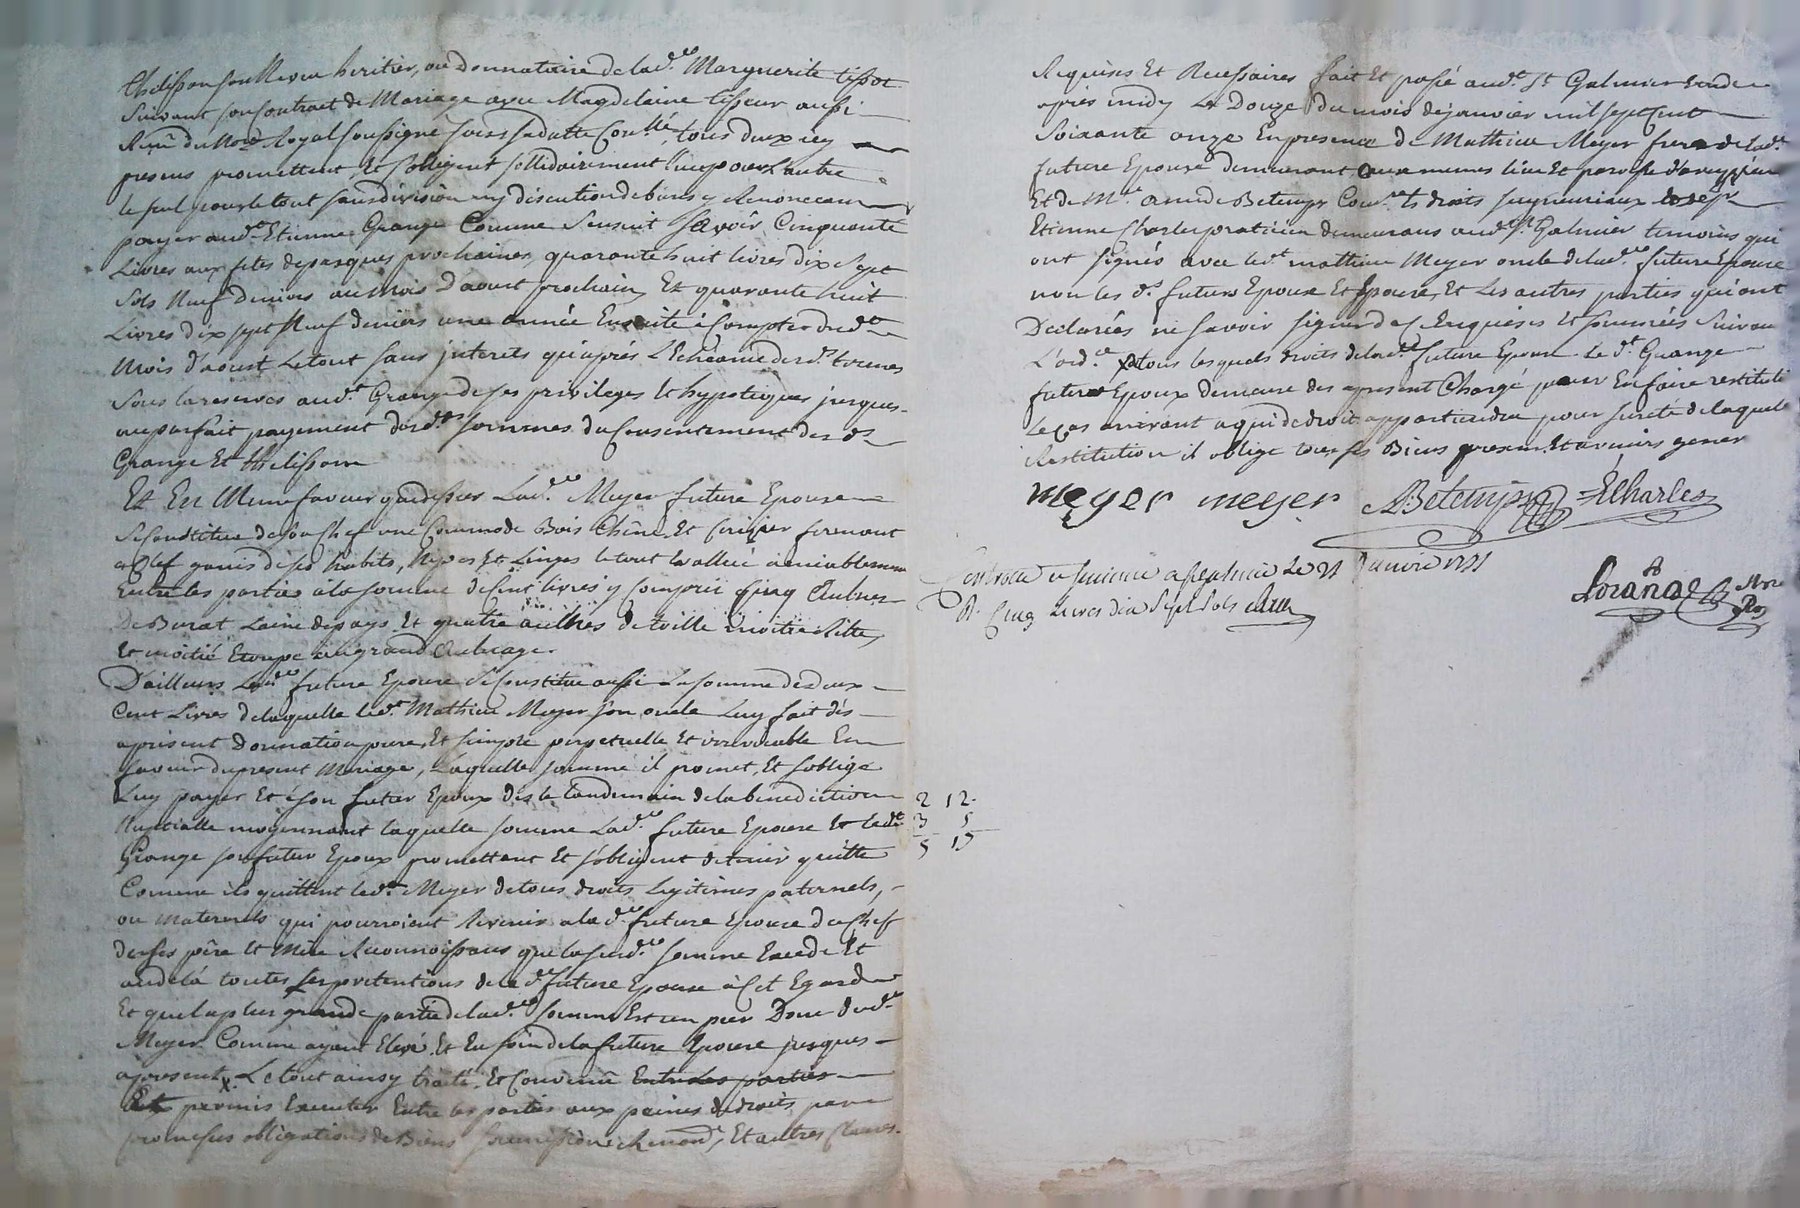 Thelisson son Neveu heritier, ou donnataire de lad.e Marguerite tissot
Suivant son Contract de Mariage avec Magdelaine tisseur aussi
Reçu du No.re Royal soussigné sous sa datte Con.llé, tous deux icy
presens promettent, Et s'obligent sollidairement l'un pour L'autre
le seul pour le tout sans division ny discution de biens y Renoncent
payer aud.t Etienne Grange Comme Sensuit Savoir Cinquante
Livres aux fetes de pasques prochaines, quarante huit livres dix Sept
Sols Neuf deniers au mois D'aoust prochain, Et quarante huit
Livres dix sept Neuf deniers une année Ensuite à Compter dud.t
Mois d'aoust Le tout sans interets qu'aprés L'Echeance desd.s termes
Sous la reserves aud.t Grange de ses privileges Et hypoteques jusques
au parfait payement desd.es sommes du Consentement des d.s
Grange Et thelisson
Et En Meme faveur que dessus Lad.e Meyer future Epouse
Se Constitue de Son Chef une Commode Bois Chêne, Et Cerisier fermant
a Clef garnie de ses habits, Nipes Et Linges le tout Evallué amiablement
Entre les parties à la somme de Cent livres y Compris Cinq Aulnes
De Burat Laine de pays Et quatre aulnes de toille moitié Ritte,
Et moitié Etoupe au grand Aulnage.
D'ailleurs Lad.e future Epouse Se Constitue aussi La somme de deux
Cent Livres de laquelle led.t Mathieu Meyer son oncle Luy fait dés
apresent Donnation pure, Et simple perpetuelle Et irrevocable En
faveur du present Mariage, Laquelle somme il promet, Et s'oblige
Luy payer Et à son futur Epoux dès le Landemain de la benediction
Nuptialle moyennant laquelle somme Lad.e future Epouse Et led.t
Grange son futur Epoux promettent Et s'obligent de tenir quitte
Comme ils quittent led.t Meyer de tous droits Legitimes paternels,
ou Maternels qui pourroient Revenir a la d.e future Epouse du Chef
de ses père Et Mère Reconnoissans que la susd.e somme Excede Et
audelà toutes Les pretentions de la d.e future Epouse à Cet Egard
Et que la plus grande partie de lad.e somme Est un pur Don dud.t
Meyer Comme ayant Elevé Et Eu soin de la future Epouse jusques
apresent x. Le tout ainsy traité, Et Convenu Entre Les parties
permis Executer Entre les parties aux peines de droits par
promesses obligations de Biens soumissions Renond., Et autres Clauses
Requises Et Necessaires fait Et passé aud.t St Galmier Etude
après midy Le Douze du mois de janvier mil sept Cent
Soixante onze En presence de Mathieu Meyer frere de lad.e
future Epouse demeurant aux memes lieu Et paroisse
Et de M.e amed Betemps Com.re Es droits seigneuriaux
Etienne Charles praticien demeurans aud.t St. Galmier temoins qui
ont signés avec led.t mathieu Meyer oncle de lad.e future Epouse
non les d.s futurs Epoux Et Epouse, Et Les autres parties qui ont
Declarées ne savoir signer de ce Enquises Et sommées Suivant
L'ord.ce x tous lesquels droits de lad.e future Epouse Le d.t Grange
futur Epoux demeure des apresent Chargé pour En faire restitution
Le Cas arivant a qui de droit appartiendra pour sureté de laquelle
Restitution il oblige tous ses Biens presens, Et avenirs
meyer meyer ABetemps ECharles
Controllé a le 21 Janvier 1771
R. Cinq Livres dix Sept Sols
2 12.
3 5
5 17